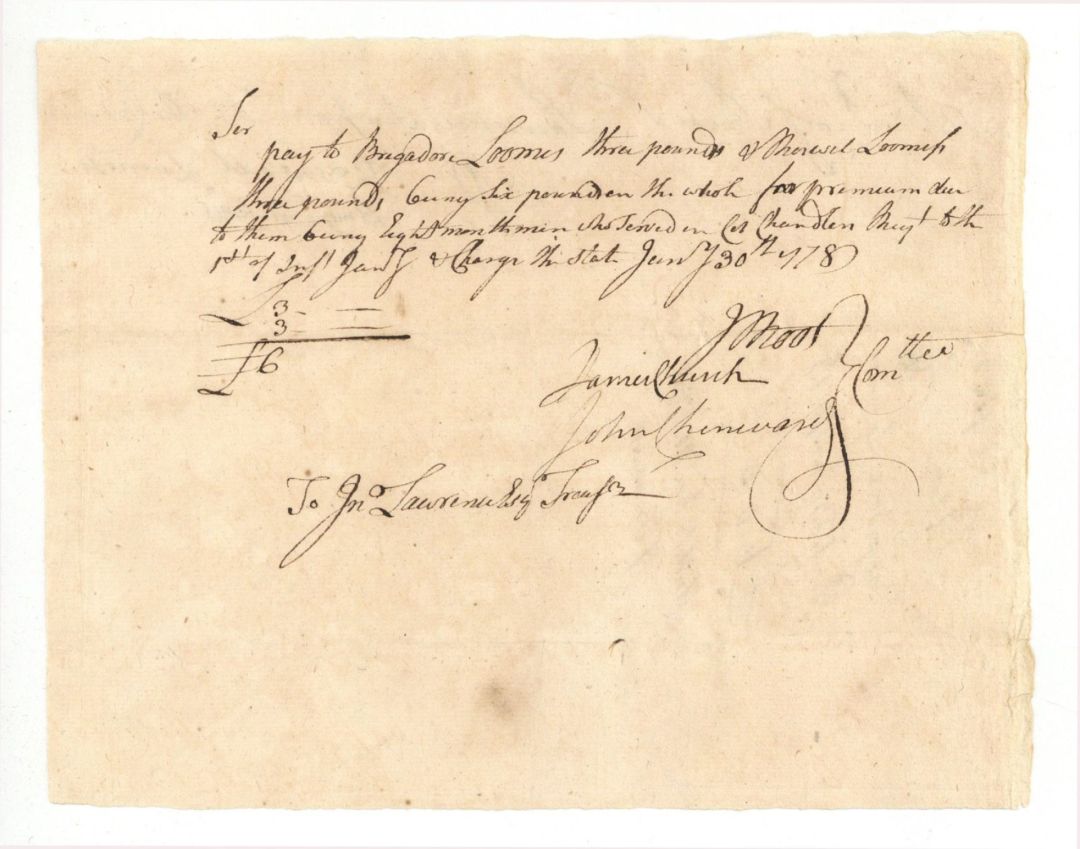 Ser
pay to Brigadore Loomis three pounds & Loomiss
three pounds being six pounds in the whole for premium due
to them being Eight month men who Served in Col Chandlers Regt to the
1st of Inst Jany & Charge the State Jany 30th 1778
£3 - —
3 - —
£6
J Root
James Church
Comttee
John Chenevard
To Jno Lawrence Esqr Treasr